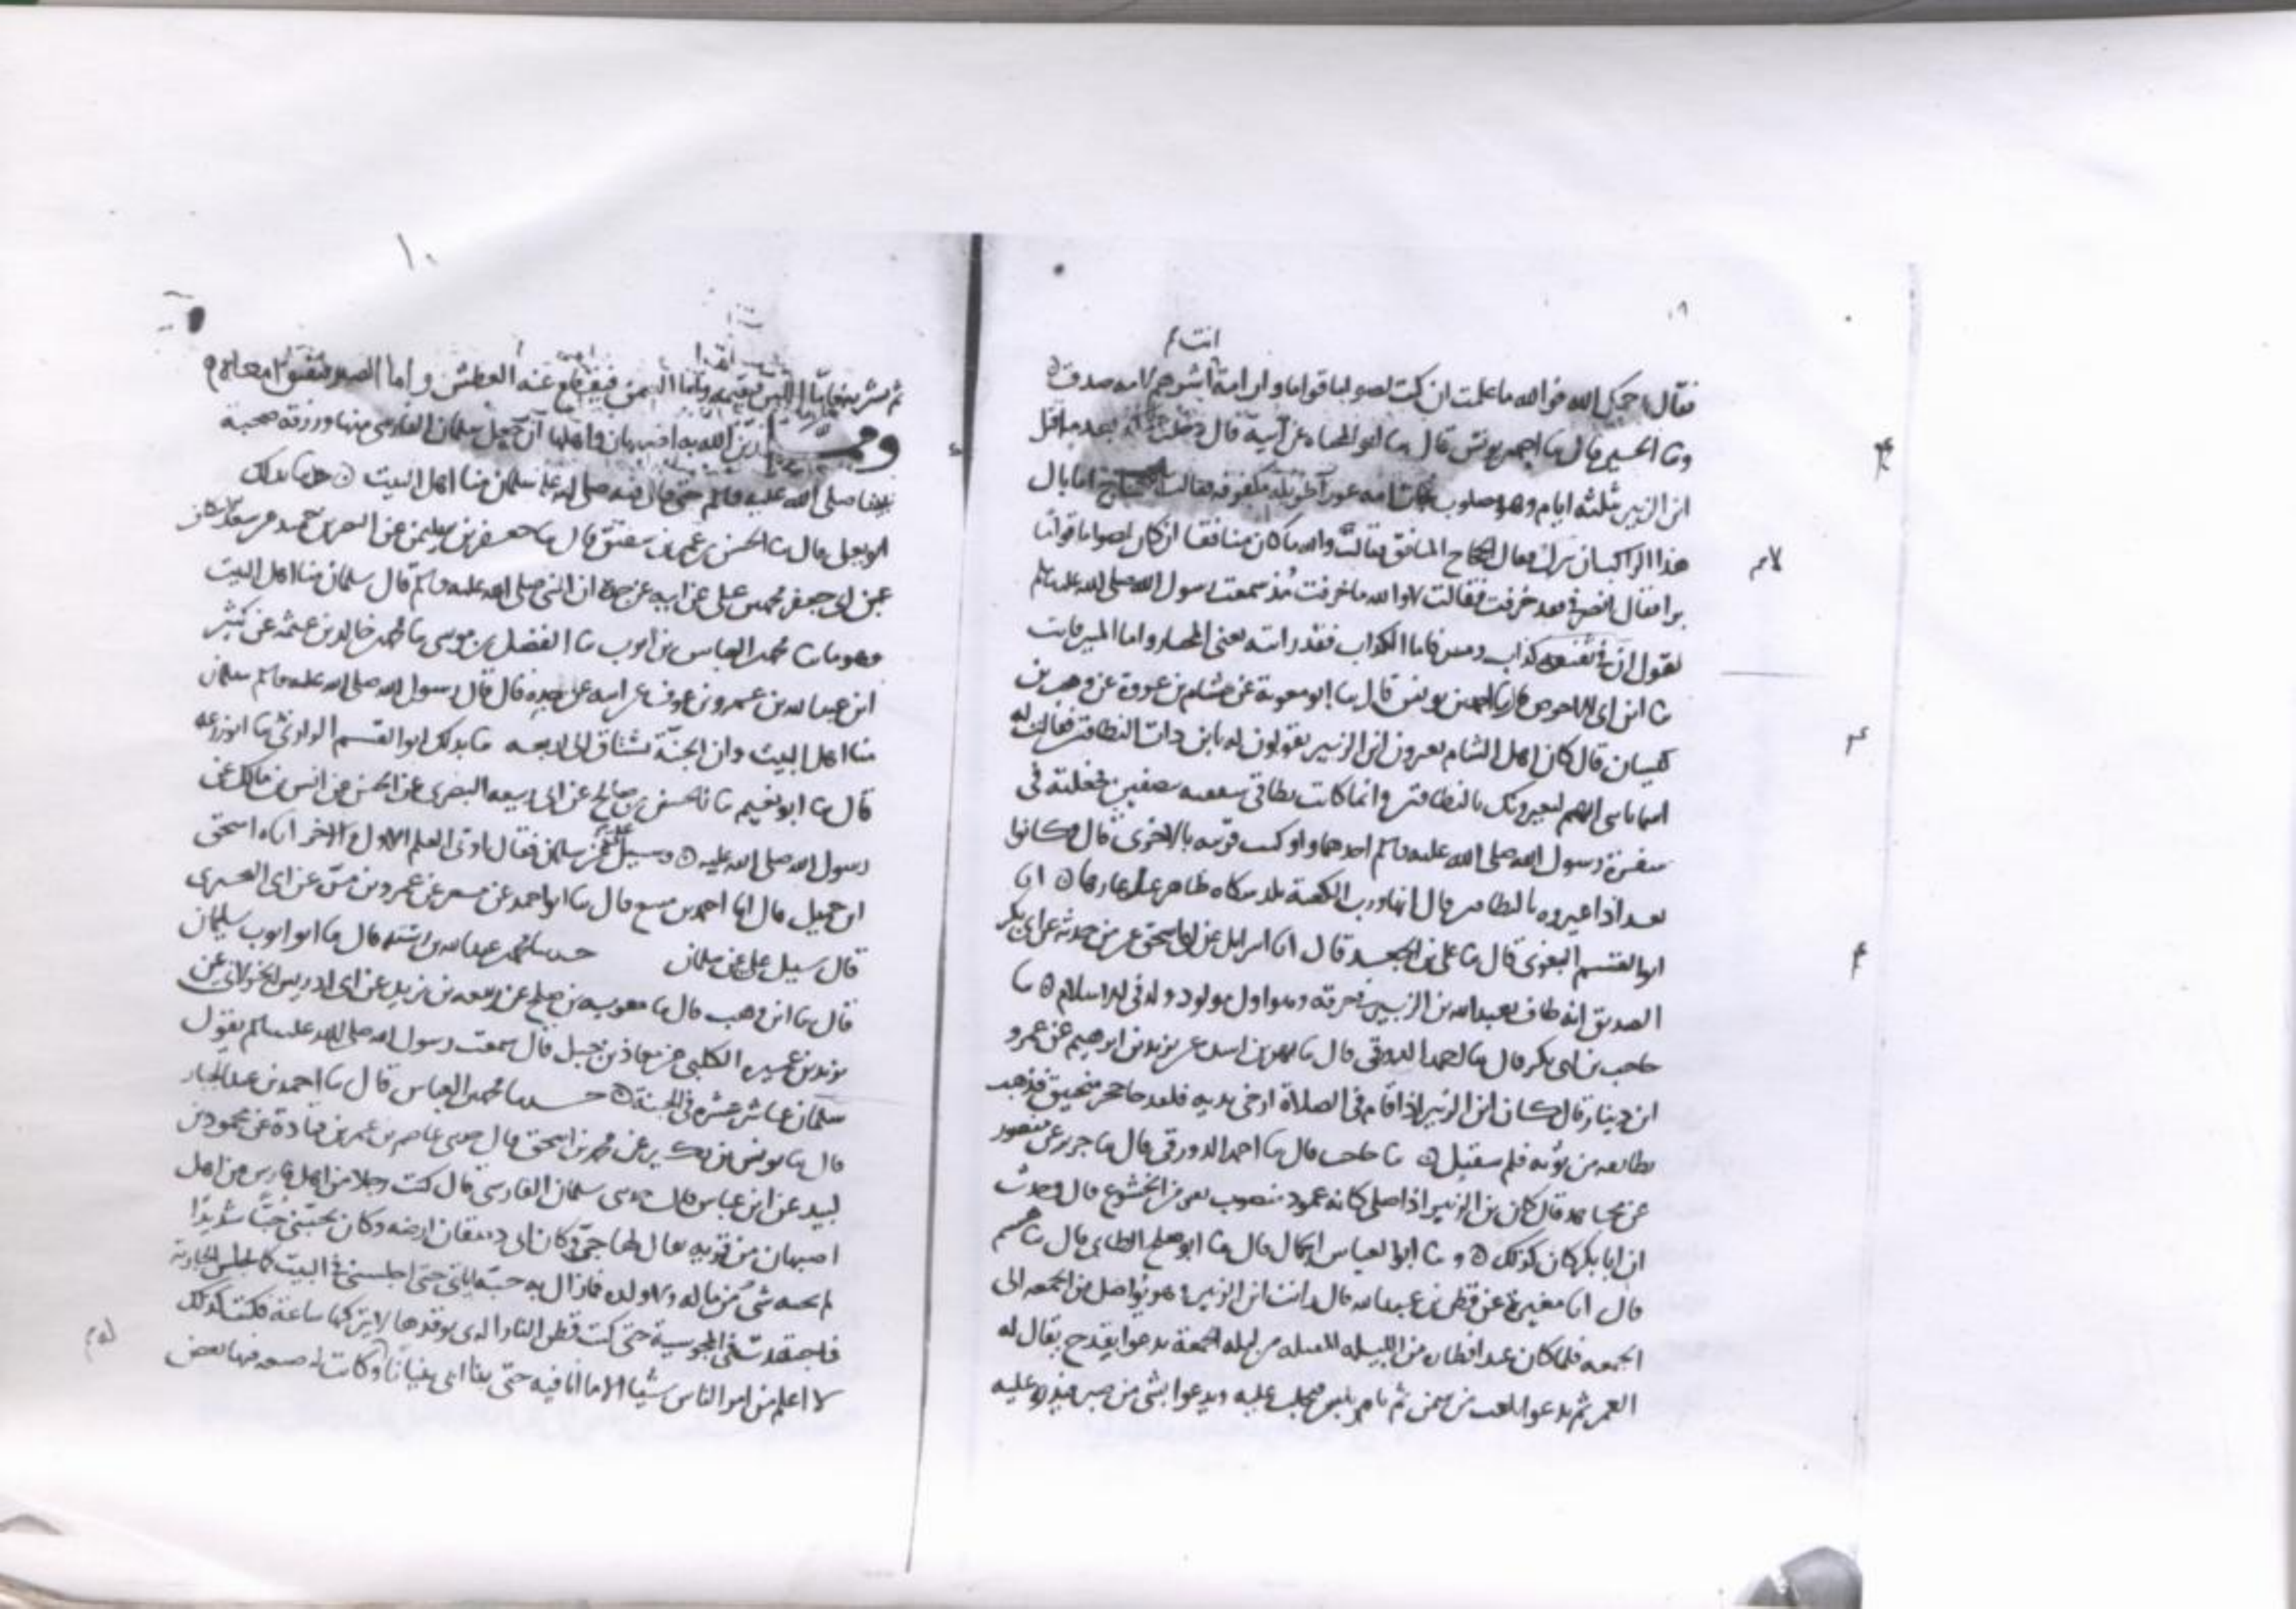 انت م
فقال رحمك الله فوالله ما علمت ان كنت لصواما قواما وان امة انت شرهم لامة صدق
وثنا الحسين قال ثنا احمد بن يونس قال ثنا ابو المحياه عن ابيه قال دخلت بعد ما قتل
ابن الزبير بثلثه ايام وهو مصلوب فجات امه عجوز طويله مكفوفه فقالت للحجاج اما بال
هذا الراكب ان ينزل فقال الحجاج المنافق فقالت والله ما كان منافقا ان كان لصواما قواما
برا فقال انصرفي فقد خرفت فقالت لا والله ما خرفت مذ سمعت رسول الله صلى الله عليه وسلم
يقول ان في ثقيف كذاب ومبير فاما الكذاب فقد رايته يعني المختار واما المبير فانت
ثنا ابن ابي الاحوص قال ثنا احمد بن يونس قال ثنا ابو معوية عن هشام بن عروة عن وهب بن
كيسان قال كان اهل الشام يعيرون ابن الزبير يقولون له يا بن ذات النطاقين فقالت له
اسما يا بني انهم ليعيرونك بالنطاقين وانما كانت نطاقي شققته نصفين فجعلته في
سفرة رسول الله صلى الله عليه وسلم احدهما واوكيت قربته بالاخرى قال فكانوا
بعد اذا عيروه بالنطاقين قال انها ورب الكعبة تلك شكاه ظاهر عنك عارها انا
ابو القسم البغوي قال ثنا علي بن الجعد قال انا اسرايل عن ابي اسحق عن من حدثه عن ابي بكر
الصديق انه طاف بعبد الله بن الزبير في خرقه وهو اول مولود ولد في الاسلام ثنا
حاجب بن ابي بكر قال ثنا احمد الدورقي قال ثنا بهز بن اسد عن يزيد بن ابرهيم عن عمرو
ابن دينار قال كان ابن الزبير اذا قام في الصلاة ارخى يديه فلقد جا حجر منجنيق فذهب
بطايفه من ثوبه فلم ينفتل ثنا حاجب قال ثنا احمد الدورقي قال ثنا جرير عن منصور
عن مجاهد قال كان بن الزبير اذا صلى كانه عمود منصوب يعني من الخشوع قال وحدث
ان ابا بكر كان كذلك وثنا ابو العباس الجمال قال ثنا ابو صلح الطائي قال ثنا هشيم
قال انا مغيرة عن قطن بن عبد الله قال رايت ابن الزبير وهو يواصل من الجمعه الى
الجمعه فلما كان عند افطاره من الليله المقبله من ليله الجمعة يدعوا بقدح يقال له
الغمر ثم يدعوا بقعب من سمن ثم يامر بلبن فيحلب عليه ويدعوا بشي من صبر فيذره عليه
١٠
ثم يشربه فاما اللبن فيقيمه واما السمن فيقطع عنه العطش واما الصبر فيفتق امعاءه
ومما زين الله به اصبهان واهلها ان جعل سلمان الفارسي منها ورزقه صحبة
نبينا صلى الله عليه وسلم حتى قال فيه صلى الله عليه سلمان منا اهل البيت حدثنا بذلك
ابو يعلى قال ثنا الحسن بن عمر بن شقيق قال ثنا جعفر بن سليمن عن النضر بن حميد عن سعد الاسكاف
عن ابي جعفر محمد بن علي عن ابيه عن جده ان النبي صلى الله عليه وسلم قال سلمان منا اهل البيت
محمد بن العباس بن ايوب ثنا الفضل بن موسى ثنا محمد بن خالد بن عثمه عن كثير
ابن عبد الله بن عمرو بن عوف عن ابيه عن جده قال قال رسول الله صلى الله عليه وسلم سلمان
منا اهل البيت وان الجنة تشتاق الى اربعه ثنا بذلك ابو القسم الرازي ثنا ابو زرعه
قال ثنا ابو نعيم ثنا الحسن بن صالح عن ابي ربيعه البصري عن الحسن عن انس بن مالك عن
رسول الله صلى الله عليه وسيل علي عن سلمان فقال اوتي العلم الاول والاخر انا اسحق
ابن جميل قال انا احمد بن منيع قال ثنا ابو احمد عن مسعر عن عمرو بن مرة عن ابي البختري
قال سيل علي عن سلمان حدثنا محمد بن عبد الله بن رسته قال ثنا ابو ايوب سليمان
قال ثنا ابن وهب قال ثنا معويه بن صلح عن ربيعه بن يزيد عن ابي ادريس الخولاني عن
يزيد بن عميره الكلبي عن معاذ بن جبل قال سمعت رسول الله صلى الله عليه وسلم يقول
سلمان عاشر عشره في الجنة حدثنا محمد بن العباس قال ثنا احمد بن عبد الجبار
قال ثنا يونس بن بكير عن محمد بن اسحق قال حدثني عاصم بن عمر بن قتادة عن محمود بن
لبيد عن ابن عباس قال حدثني سلمان الفارسي قال كنت رجلا من اهل فارس من اهل
اصبهان من قريه يقال لها جي وكان ابي دهقان ارضه وكان يحبني حبا شديدا
لم يحبه شي من ماله ولا ولده فما زال به حبه اياي حتى اجلسني في البيت كما تجلس الجارية
فاجتهدت في المجوسية حتى كنت قطن النار الذي يوقدها لا يتركها ساعة فكنت كذلك
لا اعلم من امر الناس شيا الا ما انا فيه حتى بنا ابي بنيانا وكانت له ضيعه فيها بعض